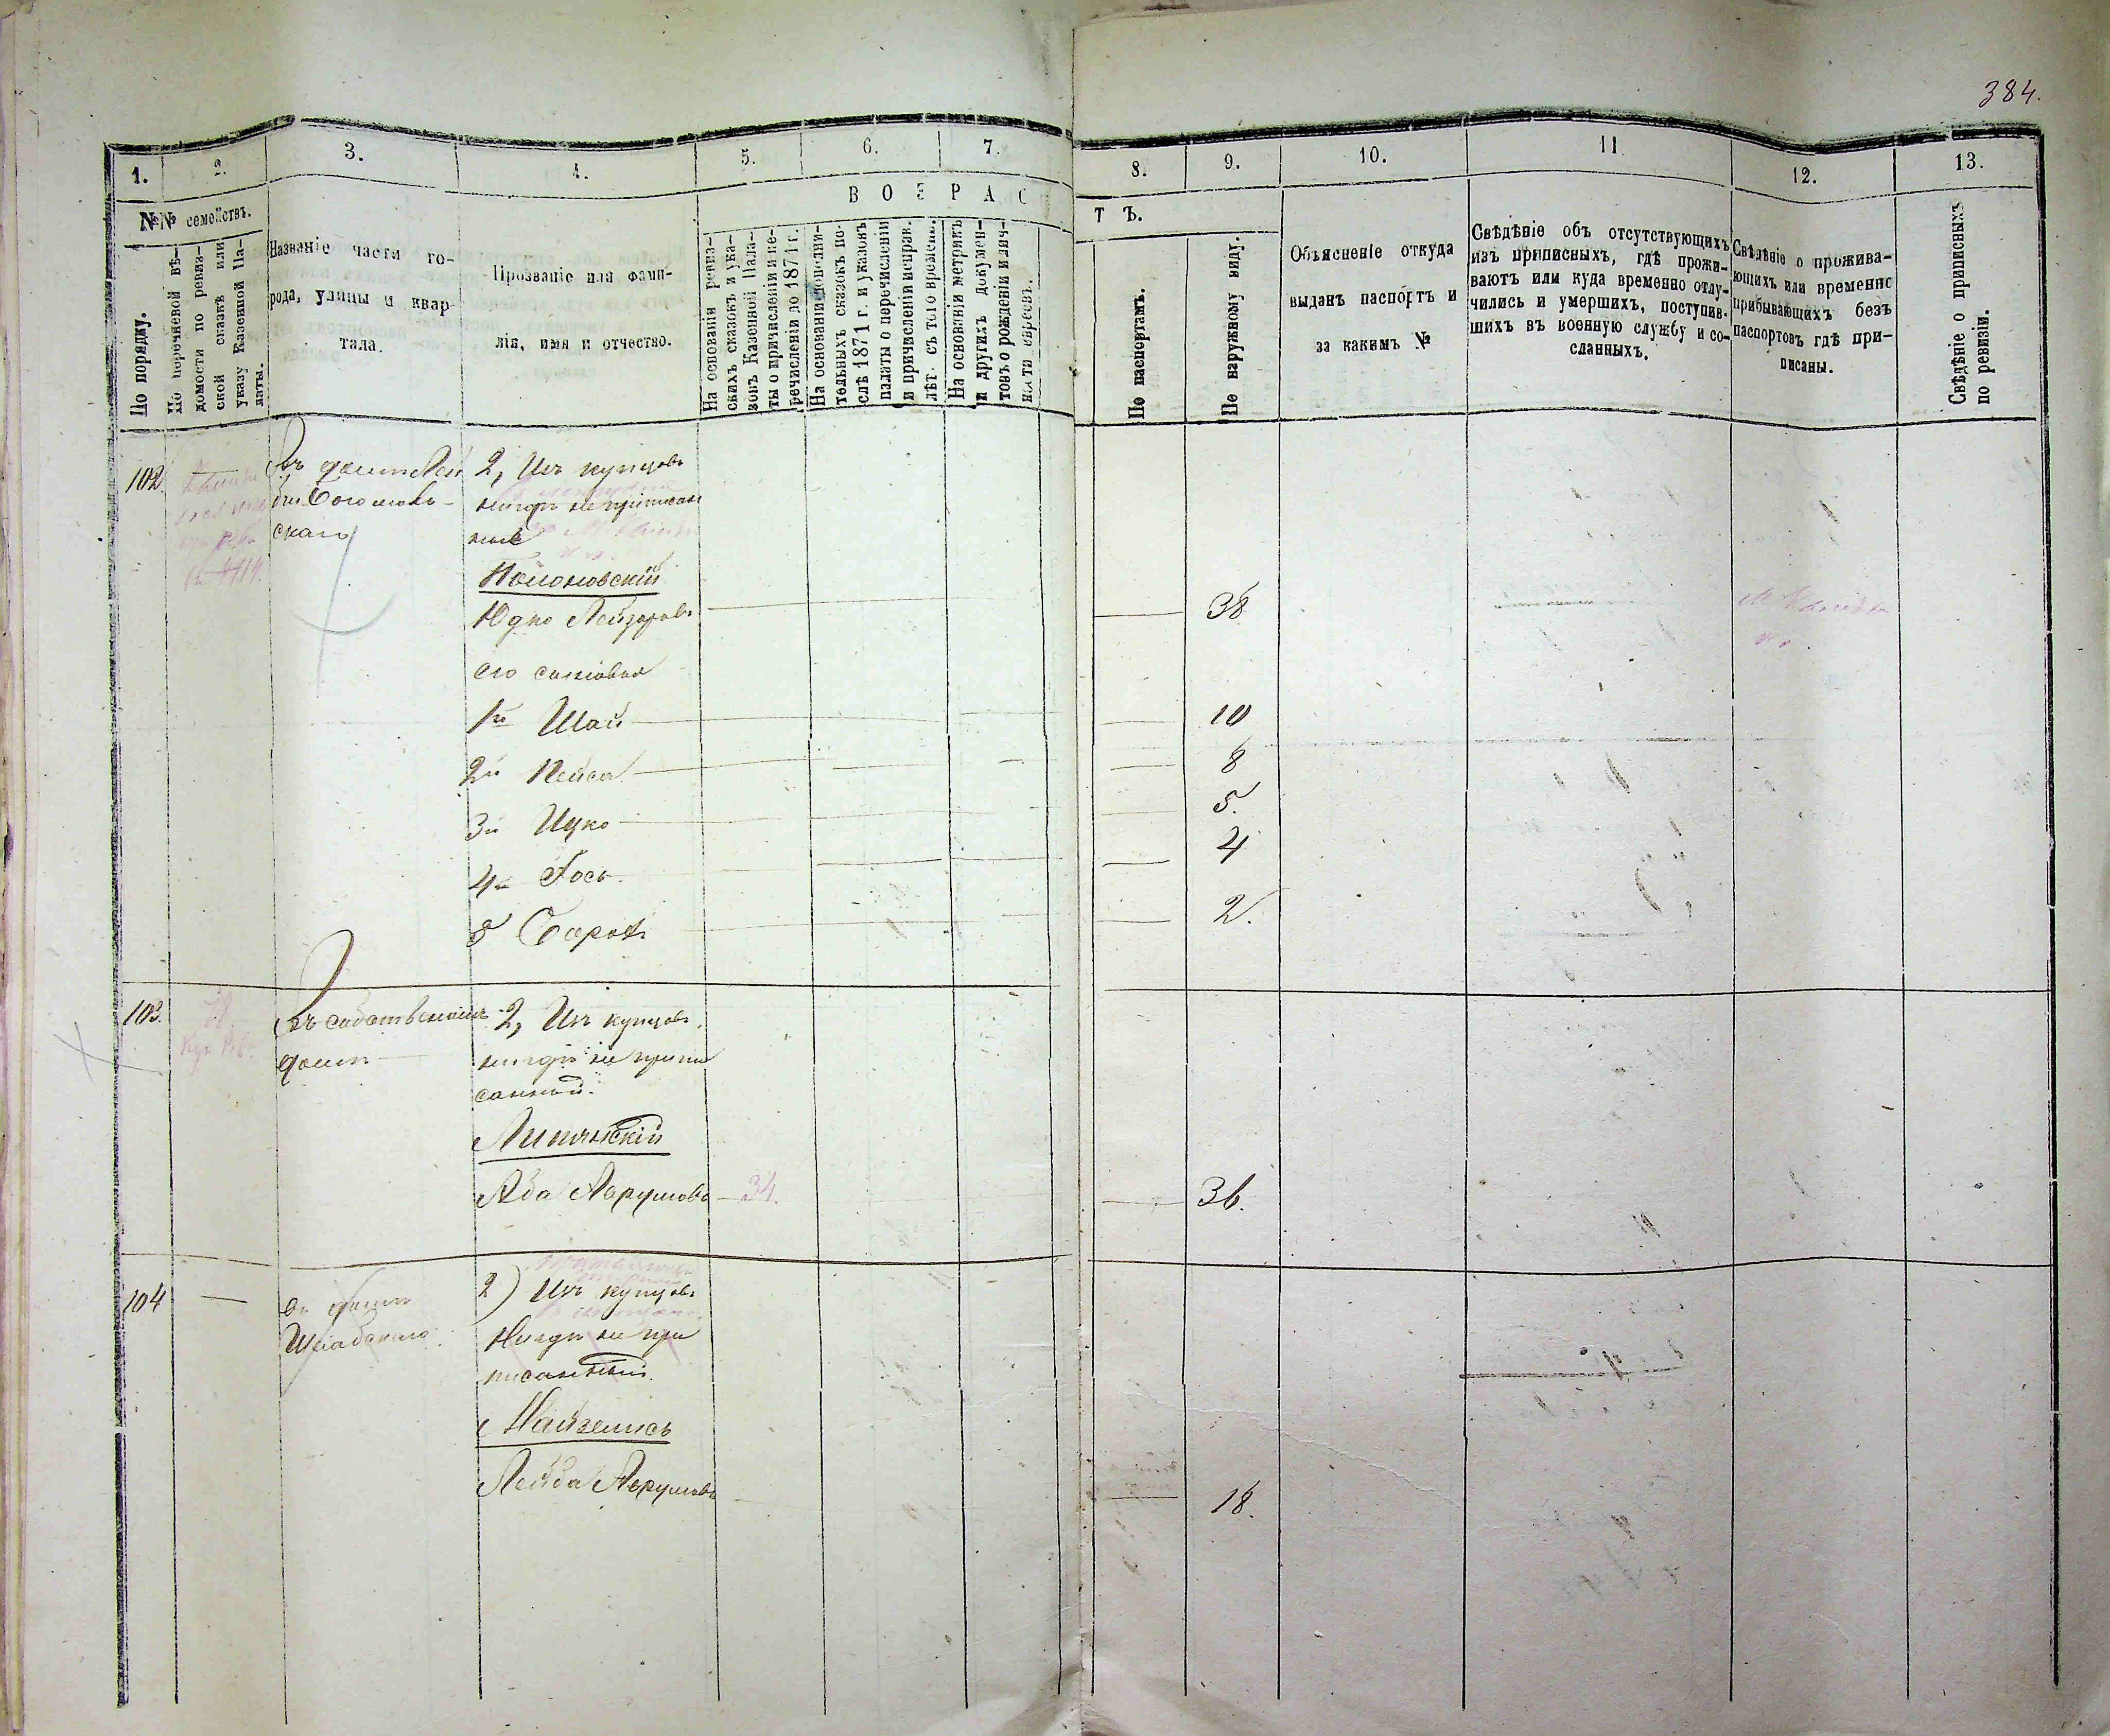 384.
1.
2.
3.
4.
5.
6.
7.
8.
9.
10.
11
12.
13.
№№ семействъ.
В О З Р А С
Т Ъ.
По порядку.
По перечневой вѣ-
домости по ревиз-
ской сказкѣ или
указу Казенной Па-
латы.
Названіе части го-
рода, улицы и квар-
тала.
Прозваніе или фами-
лія, имя и отчество.
На основаніи ревиз-
скихъ сказокъ и ука-
зовъ Казенной Пала-
ты о причисленіи и пе-
речисленіи до 1871 г.
На основаніи дополни-
тельныхъ сказокъ по-
слѣ 1871 г. и указовъ
палаты о перечисленіи
и причисленіи исправ.
лѣт. съ того времени.
На основаніи метрикъ
и другихъ докумен-
товъ о рожденіи и лич-
ности евреевъ.
По паспортамъ.
По наружному виду.
Объясненіе откуда
выданъ паспортъ и
за какимъ №
Свѣдѣніе объ отсутствующихъ
изъ приписныхъ, гдѣ прожи-
ваютъ или куда временно отлу-
чились и умершихъ, поступив-
шихъ въ военную службу и со-
сланныхъ.
Свѣдѣніе о прожива-
ющихъ или временно
прибывающихъ безъ
паспортовъ гдѣ при-
писаны.
Свѣдѣніе о приписныхъ
по ревизіи.
102
Въ домѣ
скаго
2, Изъ купцовъ
нигдѣ не приписан
ные
Юдко Лейзоровъ
38
его сыновья
1й Шая
10
2й Пейса
8
3й Ицко
5.
4й Іось
4
5 Борохъ
2.
103.
Въ собственномъ
домѣ
2, Изъ купцовъ
нигдѣ не припи
санный.
Липянскій
Аба Аврумовъ
34.
36.
104
въ домѣ
2) Изъ купцовъ
Нигдѣ не при
писанный.
Лейба Аврумовъ
18.